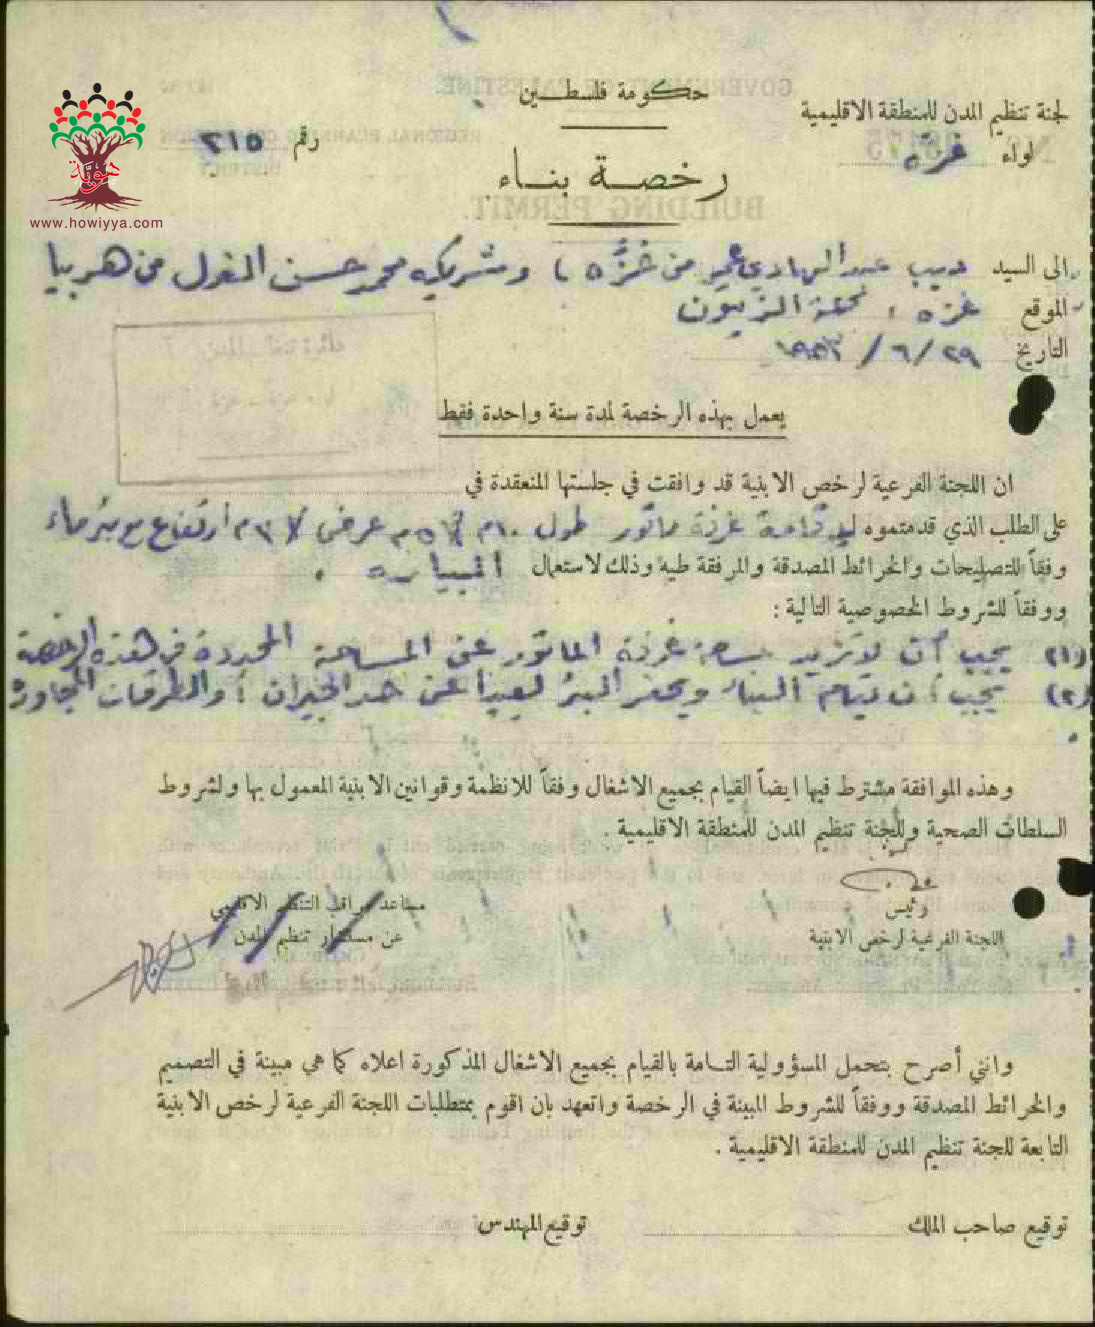 حكومة فلسطين
لجنة تنظيم المدن للمنطقة الاقليمية
لواء غزه
رقم ٢١٥
رخصة بناء
هوية
www.howiyya.com
الى السيد ديب عبد الهادي من غزه، وشريكه محمد حسن الغول من هربيا
الموقع غزه، محلة الزيتون
التاريخ ٢٩/٦/
يعمل بهذه الرخصة لمدة سنة واحدة فقط
ان اللجنة الفرعية لرخص الابنية قد وافقت في جلستها المنعقدة في
على الطلب الذي قدمتموه لاقامة غرفة ماتور طول عرض ارتفاع مع بئر ماء
وفقاً للتصليحات والخرائط المصدقة والمرفقة طيه وذلك لاستعمال البياره .
ووفقاً للشروط الخصوصية التالية :
(١) يجب أن لا تزيد مساحة غرفة الماتور عن المساحة المحددة في هذه الرخصة
(٢) يجب أن يقام البناء ويحفر البئر بعيداً عن حد الجيران والطرقات المجاورة .
وهذه الموافقة مشترط فيها ايضاً القيام بجميع الاشغال وفقاً للانظمة وقوانين الابنية المعمول بها ولشروط
السلطات الصحية وللجنة تنظيم المدن للمنطقة الاقليمية .
رئيس
اللجنة الفرعية لرخص الابنية
مساعد مراقب التنظيم الاقليمي
عن مستشار تنظيم المدن
وانني أصرح بتحمل المسؤولية التامة بالقيام بجميع الاشغال المذكورة اعلاه كما هي مبينة في التصميم
والخرائط المصدقة ووفقاً للشروط المبينة في الرخصة واتعهد بان اقوم بمتطلبات اللجنة الفرعية لرخص الابنية
التابعة للجنة تنظيم المدن للمنطقة الاقليمية .
توقيع صاحب الملك
توقيع المهندس